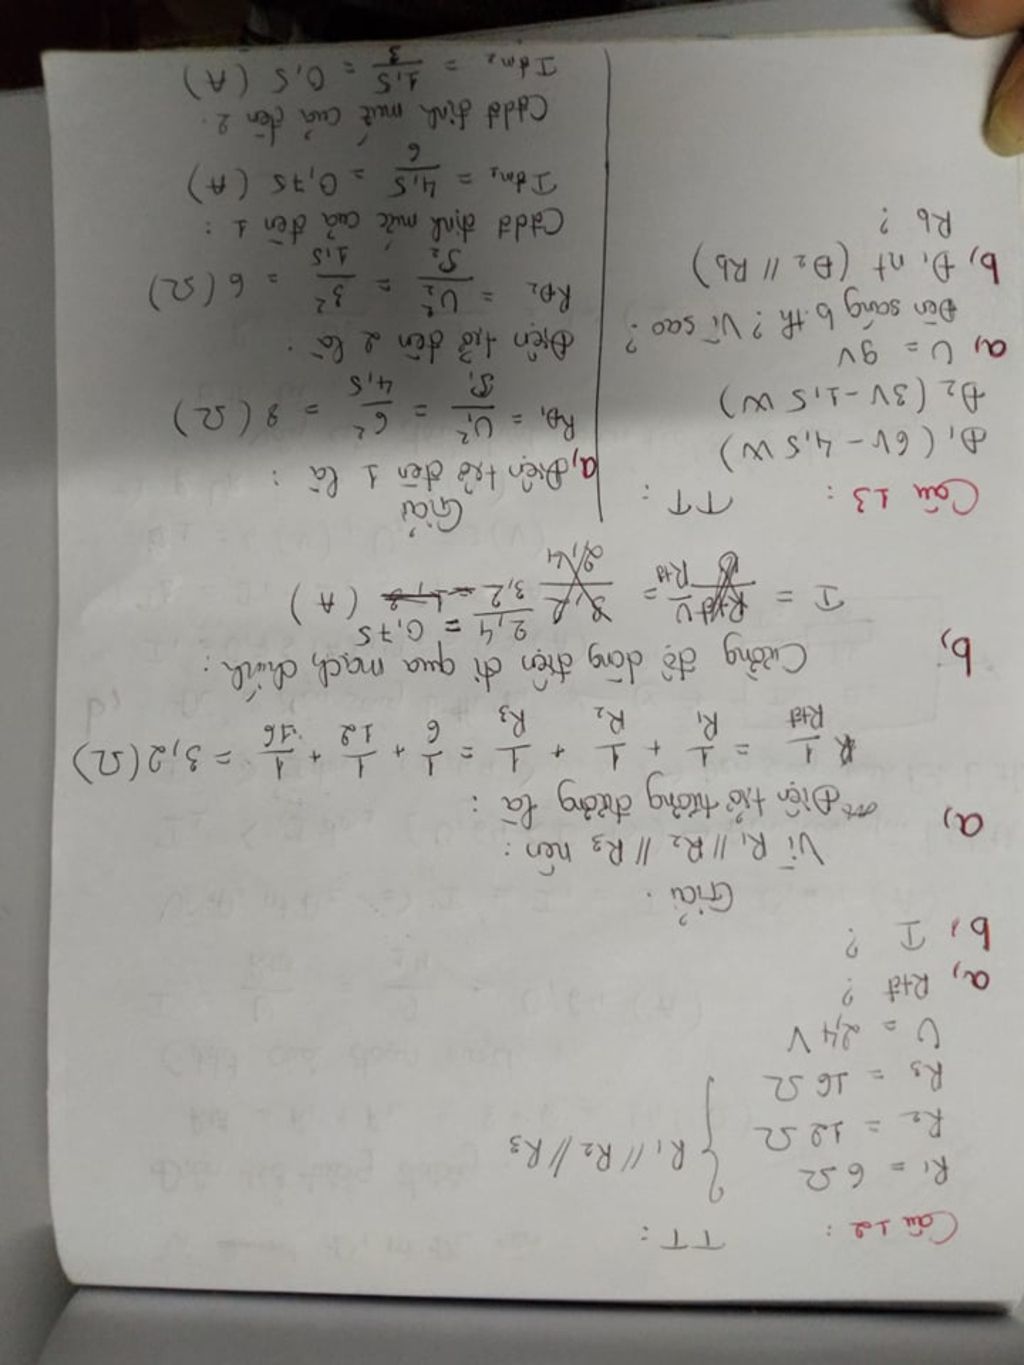 Câu 12: TT:
R1 = 6Ω
R2 = 12Ω
R3 = 16Ω
R1 // R2 // R3
U = 2,4 V
a, Rtđ ?
b, I ?
Giải.
Vì R1 // R2 // R3 nên:
a, Điện trở tương đương là:
1/Rtđ = 1/R1 + 1/R2 + 1/R3 = 1/6 + 1/12 + 1/16 = 3,2 (Ω)
b, Cường độ dòng điện đi qua mạch chính:
I = U/Rtđ = 2,4/3,2 = 0,75 (A)
Câu 13: TT:
Đ1 (6V - 4,5 W)
Đ2 (3V - 1,5 W)
a, U = 9V
Đèn sáng b.th? Vì sao?
b, Đ1 nt (Đ2 // Rb)
Rb ?
Giải
a, Điện trở đèn 1 là:
RĐ1 = U1²/P1 = 6²/4,5 = 8 (Ω)
Điện trở đèn 2 là.
RĐ2 = U2²/P2 = 3²/1,5 = 6 (Ω)
Cđdđ định mức của đèn 1:
Iđm1 = 4,5/6 = 0,75 (A)
Cđdđ định mức của đèn 2.
Iđm2 = 1,5/3 = 0,5 (A)